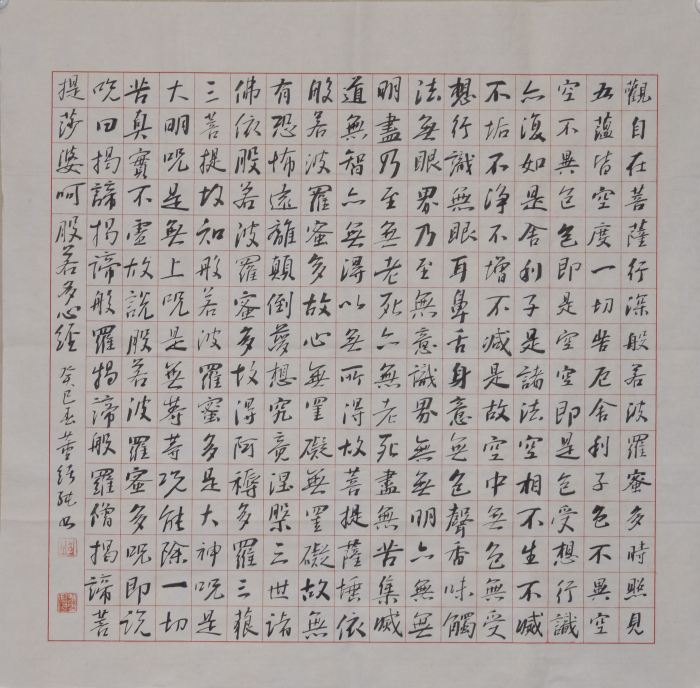 觀自在菩薩行深般若波羅蜜多時照見
五蘊皆空度一切苦厄舍利子色不異空
空不異色色即是空空即是色受想行識
亦復如是舍利子是諸法空相不生不滅
不垢不淨不增不減是故空中無色無受
想行識無眼耳鼻舌身意無色聲香味觸
法無眼界乃至無意識界無無明亦無無
明盡乃至無老死亦無老死盡無苦集滅
道無智亦無得以無所得故菩提薩埵依
般若波羅蜜多故心無罣礙無罣礙故無
有恐怖遠離顛倒夢想究竟涅槃三世諸
佛依般若波羅蜜多故得阿耨多羅三藐
三菩提故知般若波羅蜜多是大神咒是
大明咒是無上咒是無等等咒能除一切
苦真實不虛故說般若波羅蜜多咒即說
咒曰揭諦揭諦般羅揭諦般羅僧揭諦菩
提莎婆呵般若多心經 癸巳 董 純書